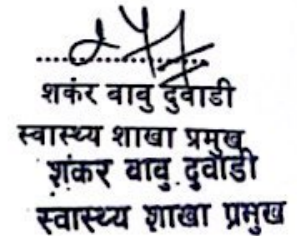 शकंर वावु दुवाडी
स्वास्थ्य शाखा प्रमुख
शंकर बाबु दुवाडी
स्वास्थ्य शाखा प्रमुख